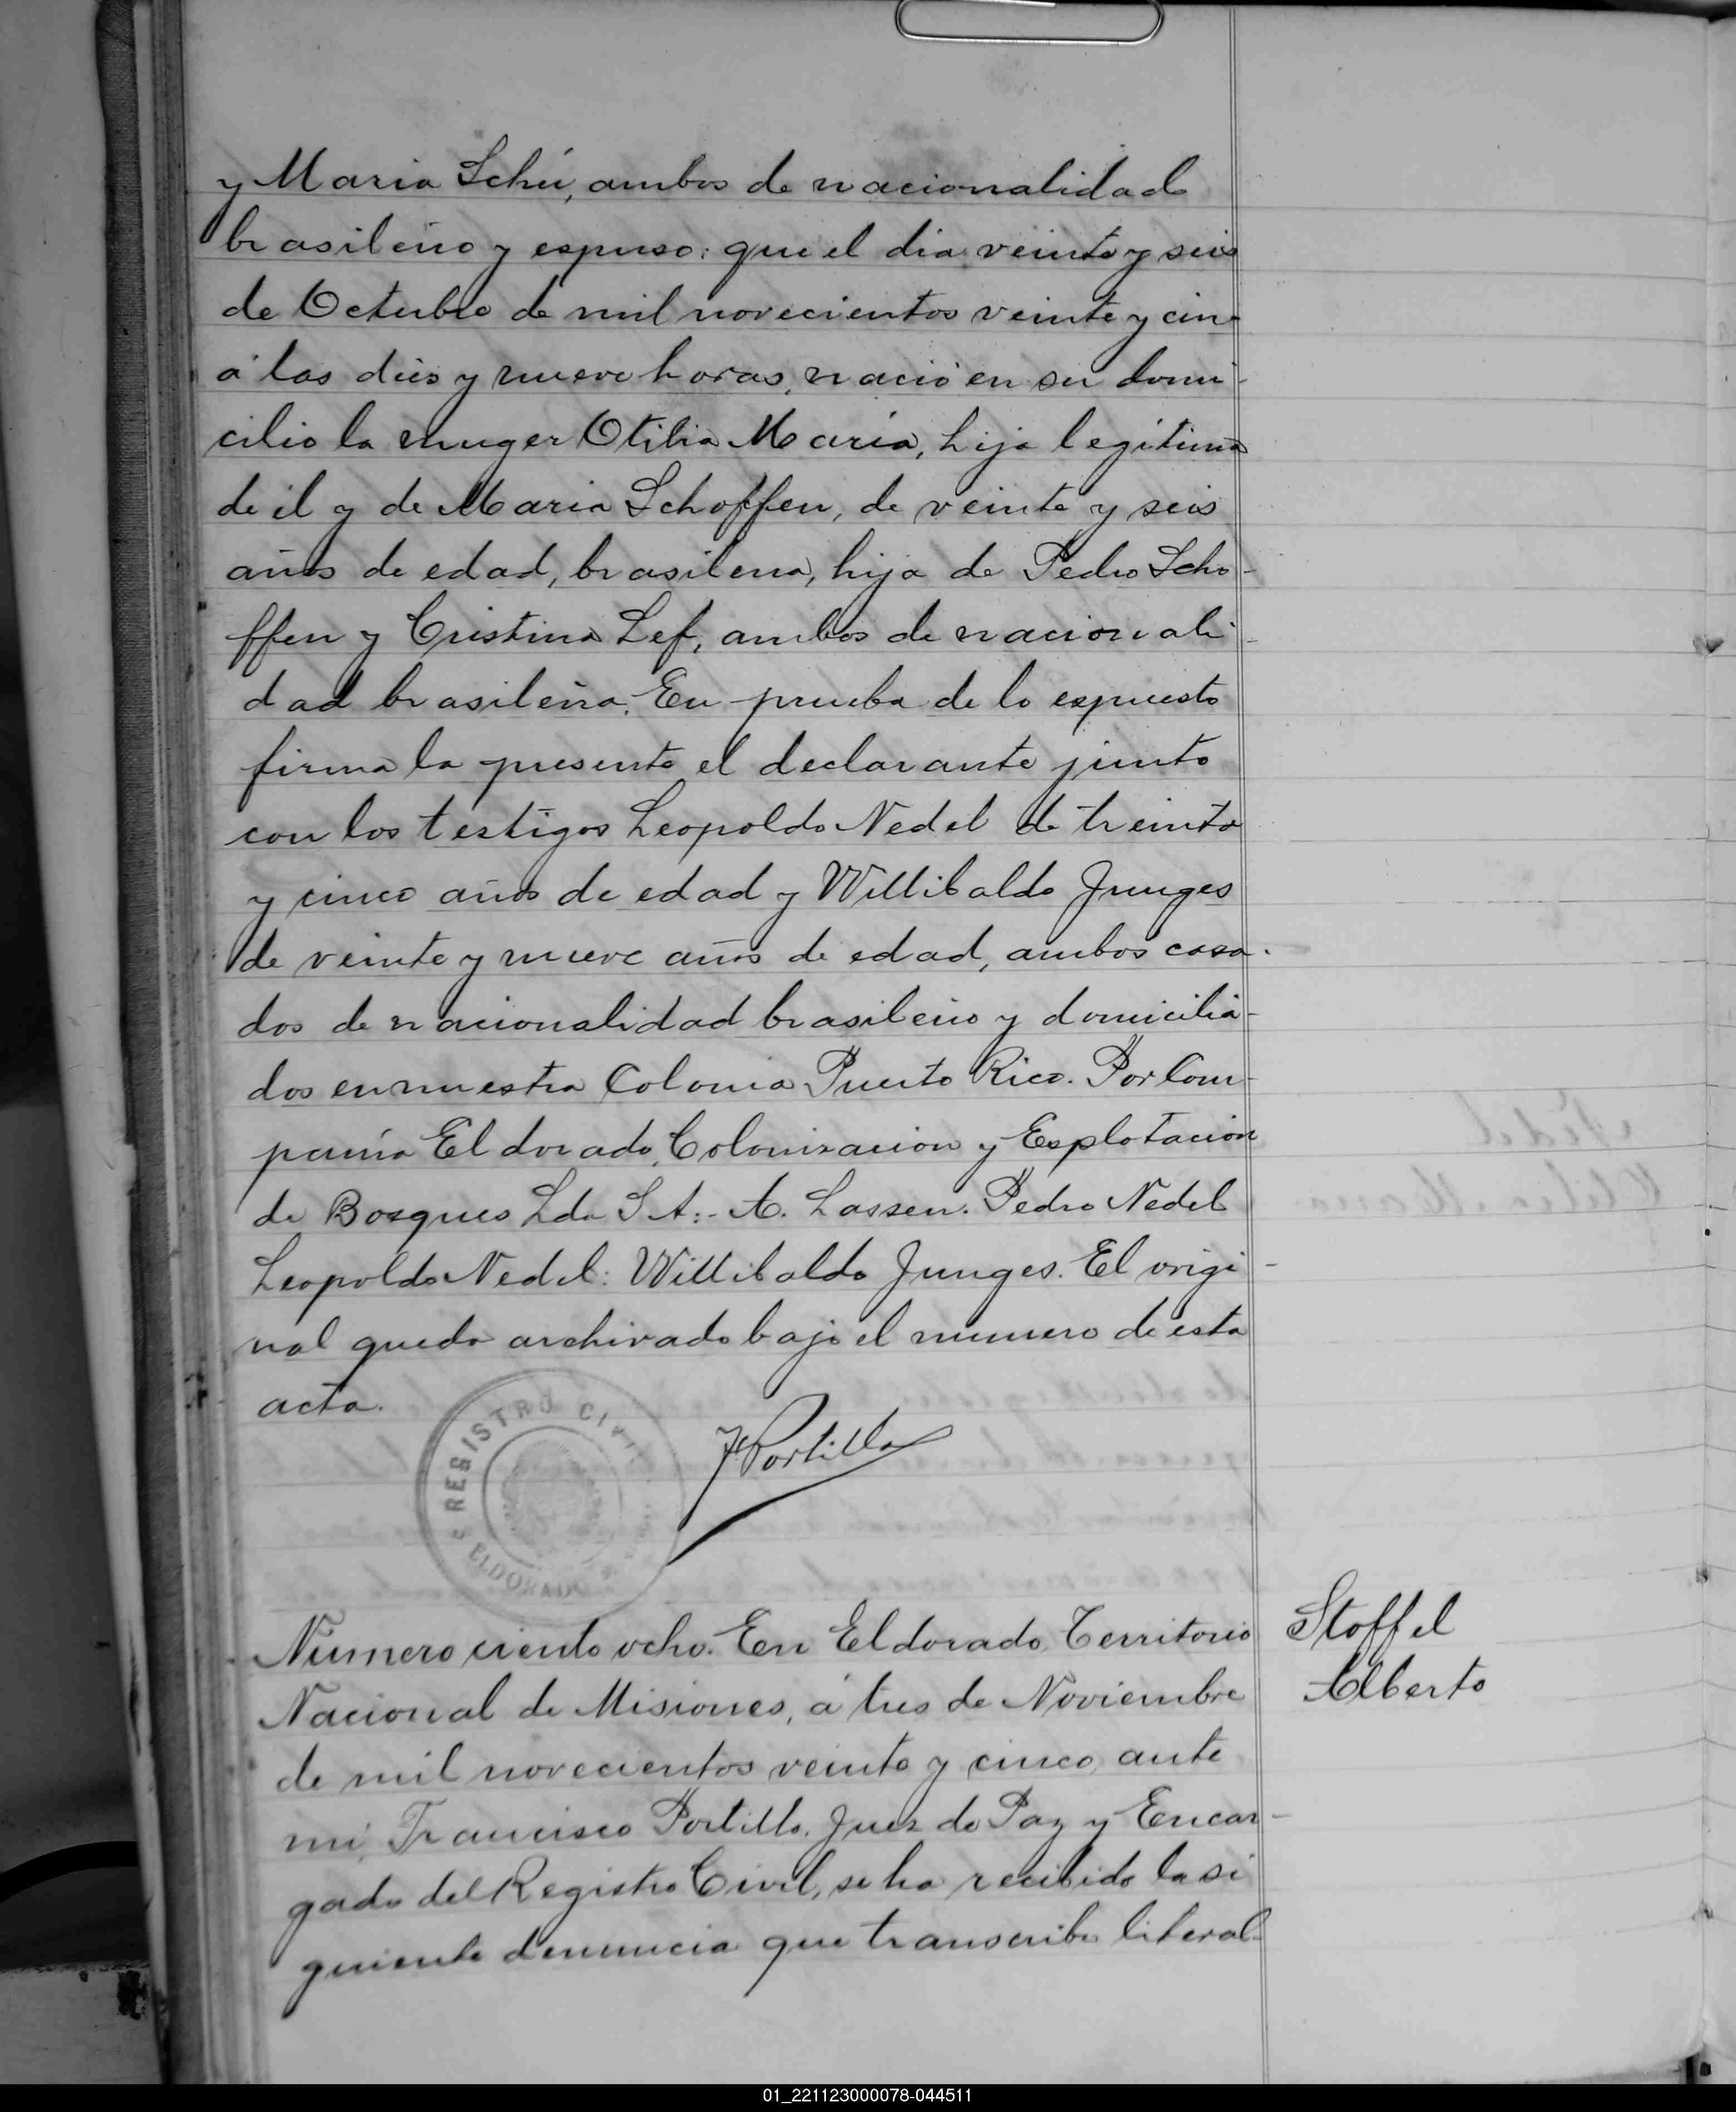 y Maria Schú, ambos de nacionalidad
brasileño y espuso: que el dia veinte y seis
de Octubre de mil novecientos veinte y cin-
á las dies y nueve horas, nació en su domi-
cilio la muger Otilia Maria, hija legitima
de él y de Maria Schoffen, de veinte y seis
años de edad, brasilena, hija de Pedro Scho-
ffen y Cristina Lef, ambos de nacionali-
dad brasileña. En prueba de lo espuesto
firma la presente el declarante junto
con los testigos Leopoldo Nedel de treinta
y cinco años de edad y Willibaldo Junges
de veinte y nueve años de edad, ambos casa-
dos de nacionalidad brasileño y domicilia-
dos en nuestra Colonia Puerto Rico. Por Com-
pania Eldorado, Colonizacion y Esplotacion
de Bosques Lda S A:- A. Lassen. Pedro Nedel
Leopoldo Nedel: Willibaldo Junges. El origi-
nal queda archivado bajo el numero de esta
acta.
REGISTRO CIVIL
ELDORADO
F Portillo
Stoffel
Alberto
Número ciento ocho. En Eldorado, Territorio
Nacional de Misiones, á tres de Noviembre
de mil novecientos veinte y cinco, ante
mi, Francisco Portillo, Juez de Paz y Encar-
gado del Registro Civil, se ha recibido la si
guiente denuncia que transcribo literal-
01_221123000078-044511